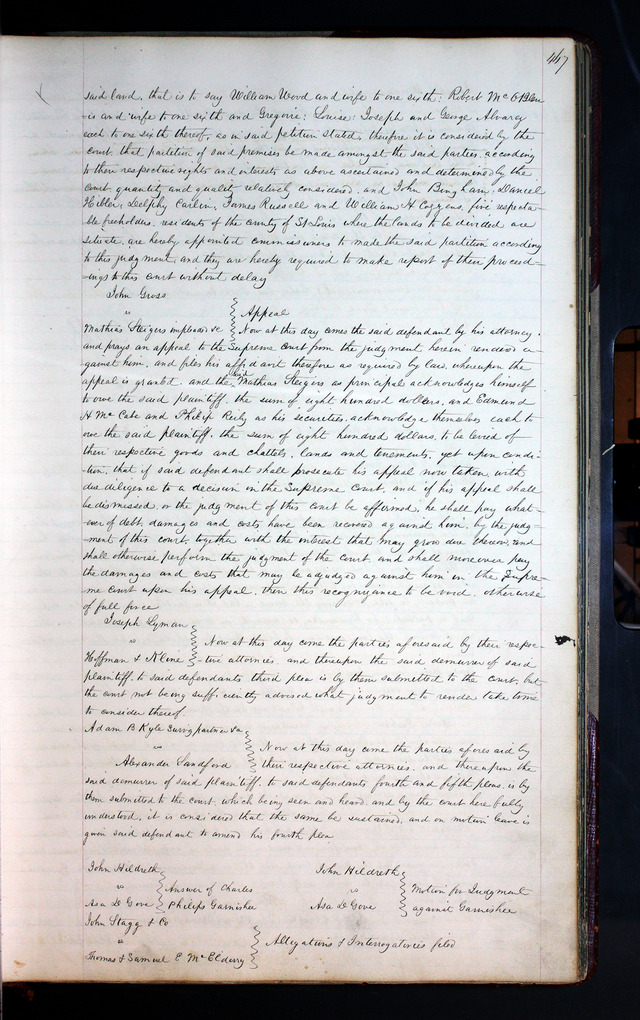 467
said land, that is to say William Wood and wife to one sixth: Robert Mc O Blen
is and wife to one sixth and Gregorie: Louise: Joseph and George Alvarez
each to one sixth thereof, as in said petition stated, therefore it is considered by the
court that partition of said premises be made amongst the said parties, according
to their respective rights and interests as above ascertained and determined by the
court quantity and quality relatively considered, and John Bingham, Daniel
Hiller, Delphy Carlin, James Russell and William H Cozzens, five respecta-
ble freeholders, residents of the county of St Louis where the lands to be divided are
situate, are hereby appointed commissioners to made the said partition according
to this judgment, and they are hereby required to make report of their proceed-
ings to this court without delay
John Gross
vs
Appeal
Mathias Steigers impleaded &c
Now at this day comes the said defendant by his attorney,
and prays an appeal to the Supreme court from the judgment herein rendered a-
gainst him, and files his affidavit therefore as required by law, whereupon the
appeal is granted, and the said Mathias Steigers as principal acknowledges himself
to owe the said plaintiff, the sum of eight hundred dollars, and Edmund
H Mc Cabe and Philip Reily as his securities, acknowledge themselves each to
owe the said plaintiff, the sum of eight hundred dollars, to be levied of
their respective goods and chattels, lands and tenements, yet upon condi-
tion, that if said defendant shall prosecute his appeal now taken with
due diligence to a decision in the Supreme Court, and if his appeal shall
be dismissed, or the judgment of this court be affirmed, he shall pay what-
ever of debt, damages and costs, have been recovered against him, by the judg-
ment of this court, together with the interest that may grow due thereon, and
shall otherwise perform the judgment of the court and shall moreover pay
the damages and costs that may be adjudged against him in the Supre-
me court upon his appeal, then this recognizance to be void, otherwise
of full force
Joseph Lyman
vs
Now at this day come the parties aforesaid by their respec-
Hoffman & Kline
tive attornies, and thereupon the said demurrer of said
plaintiff, to said defendants third plea is by them submitted to the court, but
the court not being sufficiently advised what judgment to render take time
to consider thereof.
Adam B Kyle Survg partner &c
vs
Now at this day come the parties aforesaid by
Alexander Sandford
their respective attornies, and thereupon the
said demurrer of said plaintiff, to said defendants fourth and fifth pleas, is by
them submitted to the court, which being seen and heard, and by the court here fully
understood, it is considered that the same be sustained, and on motion leave is
given said defendant to amend his fourth plea
John Hildreth
vs
Answer of Charles
Asa De Gove
Philips Garnishee
John Hildreth
vs
Motion for Judgment
Asa De Gove
against Garnishee
John Stagg & Co
vs
Allegations & Interrogatories filed
Thomas & Samuel E Mc Elderry